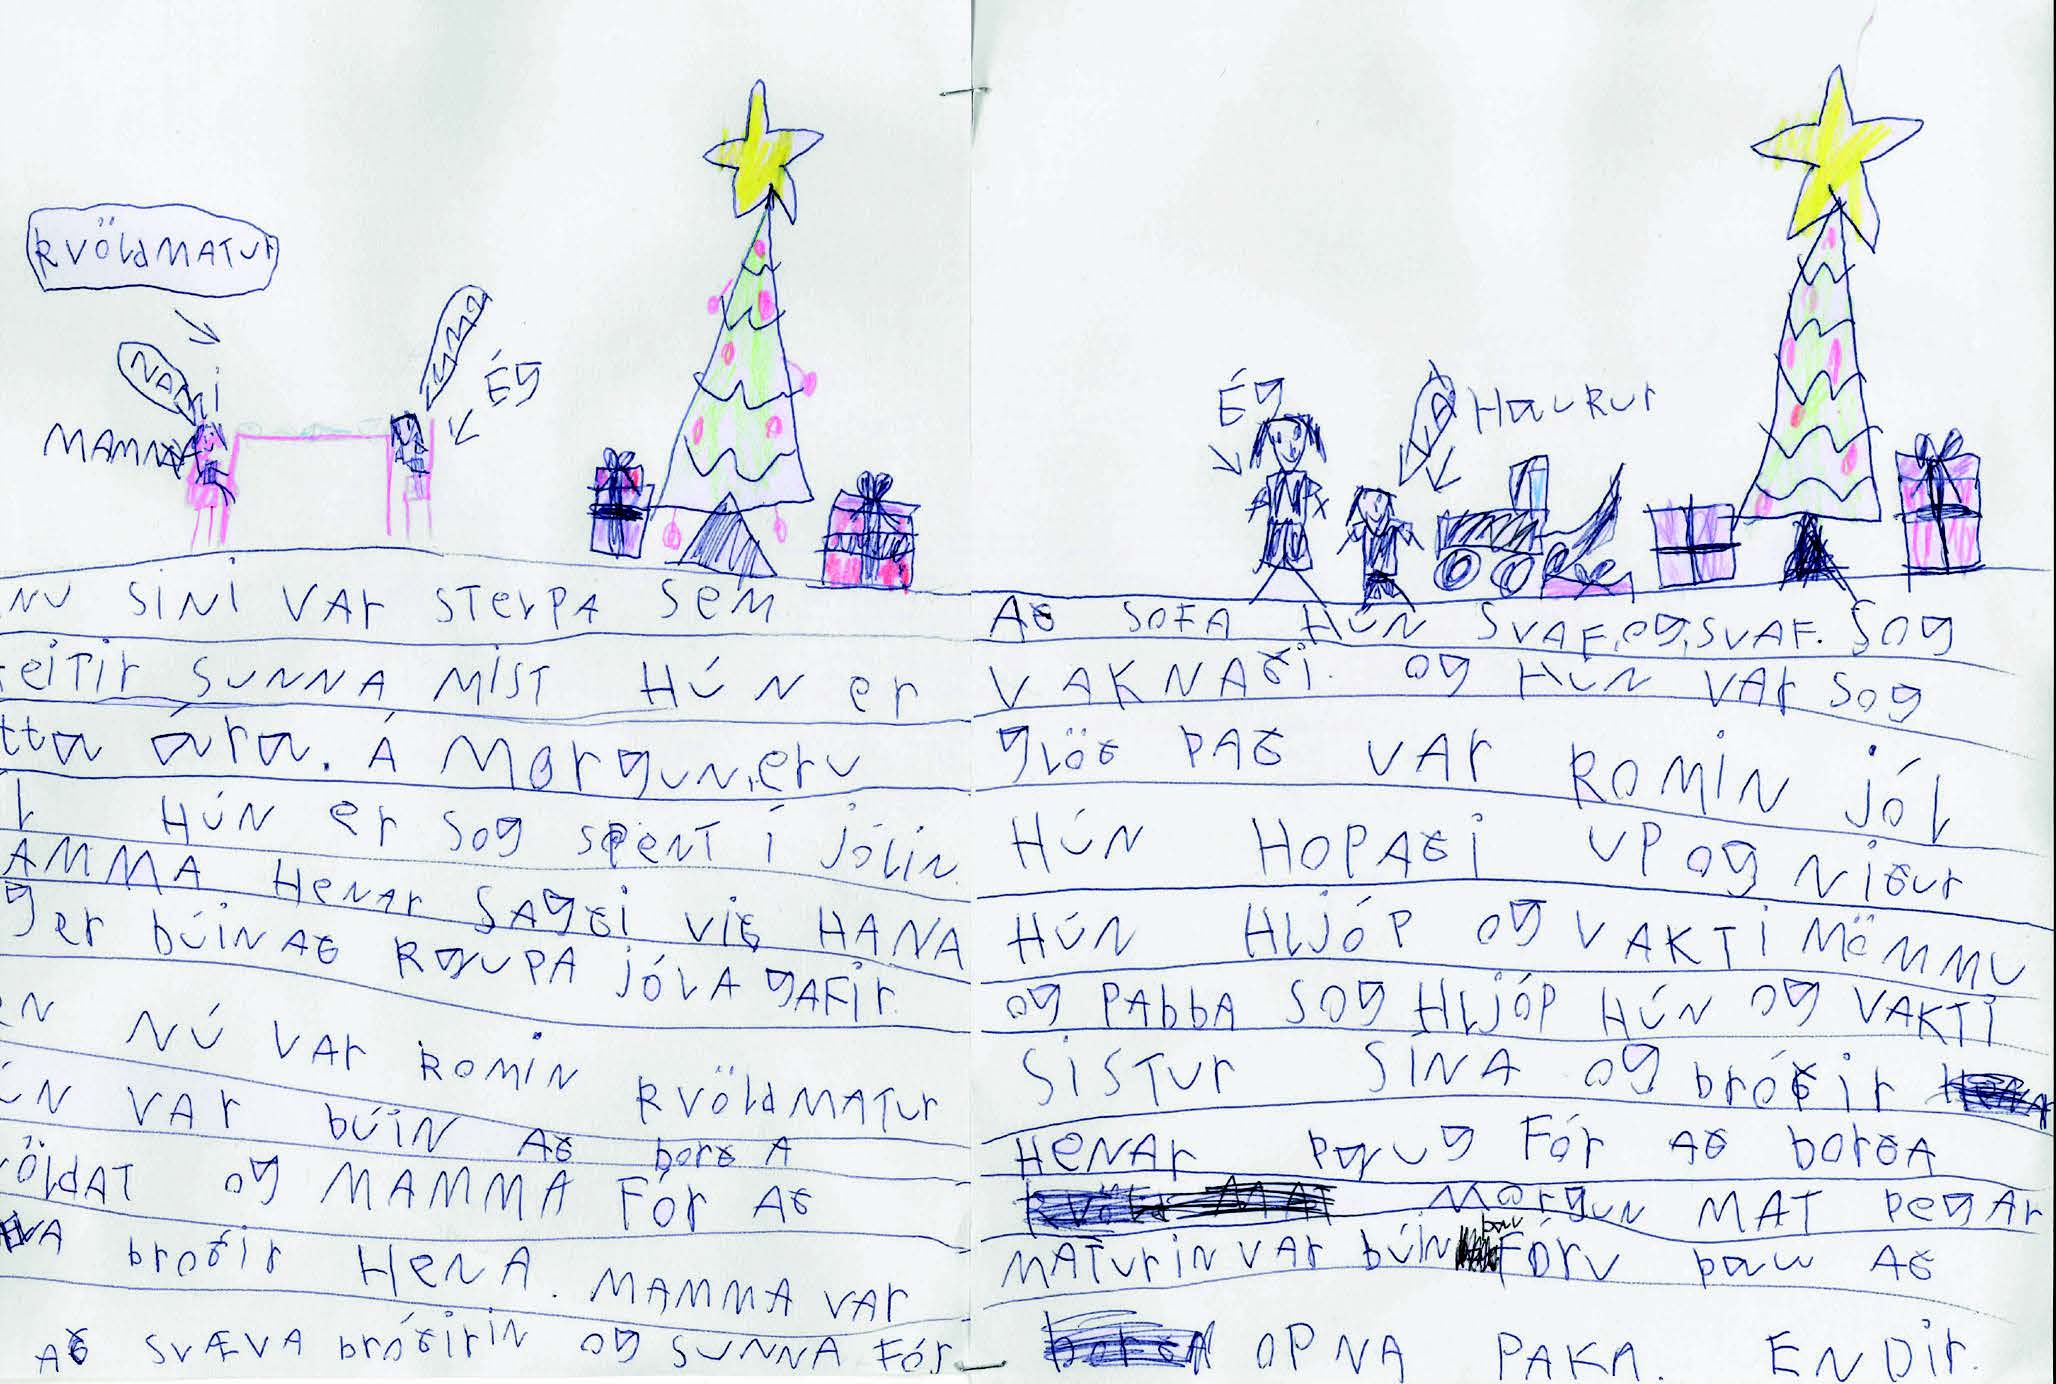 KVÖLDMATUR
NAMMI
MAMMA
ÉG
NU SINI VAR STERPA SEM
EITIR SUNNA MIST HÚN er
tta ára. Á MorguN, eru
HÚN er SOg SPeNT í JÓLiN.
AMMA HeNAr SAGÐi VIÐ HANA
g er búiN AÐ KAUPA JÓLA GAFir.
eN NÚ VAr KOMiN KVÖLdMATur
ÚN VAr búiN AÐ borÐA
VÖLdAT og MAMMA FÓr AÐ
broÐir HeNA. MAMMA VAr
AÐ SVÆVA bróÐiriN og SUNNA FÓr
Ég
HAUKUr
AÐ SOFA HÚN SVAF, og, SVAF. SOg
VAKNAÐi. og HÚN VAr SOg
gLÖÐ ÞAÐ VAr KOMiN JÓL
HÚN HOPAÐi UP og NiÐur
HÚN HLJÓP og VAKTi MÖMMU
og PAbbA SOg HLJÓP HÚN og VAKTi
SiSTur SÍNA og bróÐir
HeNAr ÞAU g FÓr AÐ borÐA
MorguN MAT ÞegAr
MATuriN VAr búiN þau FÓrU þau AÐ
OPNA PAKA. ENDir.